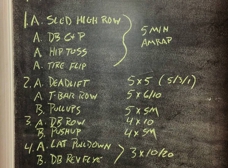 1A. SLED HIGH ROW
A. DB C+P
A. HIP TOSS
A. TIRE FLIP
5 MIN
AMRAP
2. A. DEADLIFT 5x5 (5/3/1)
A. T-BAR ROW 5x6/10
B. PULLUPS 5xSM
3. A. DB ROW 4x10
B. PUSHUP 4xSM
4. A. LAT PULLDOWN
B. DB REV FLYE
3x10/20